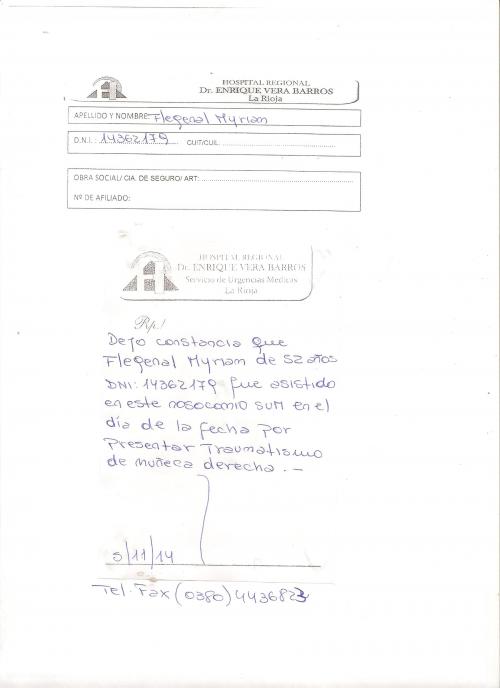 HOSPITAL REGIONAL
Dr. ENRIQUE VERA BARROS
La Rioja
APELLIDO Y NOMBRE: Flegenal Myriam
D.N.I.: 14362179 CUIT/CUIL:
OBRA SOCIAL/ CIA. DE SEGURO/ ART:
Nº DE AFILIADO:
HOSPITAL REGIONAL
Dr. ENRIQUE VERA BARROS
Servicio de Urgencias Medicas
La Rioja
Rp/
Dejo constancia que
Flegenal Myriam de 52 años
DNI: 14362179 fue asistido
en este nosocomio SUM en el
día de la fecha por
presentar Traumatismo
de muñeca derecha. -
5/11/14
Tel. Fax (0380) 4436823